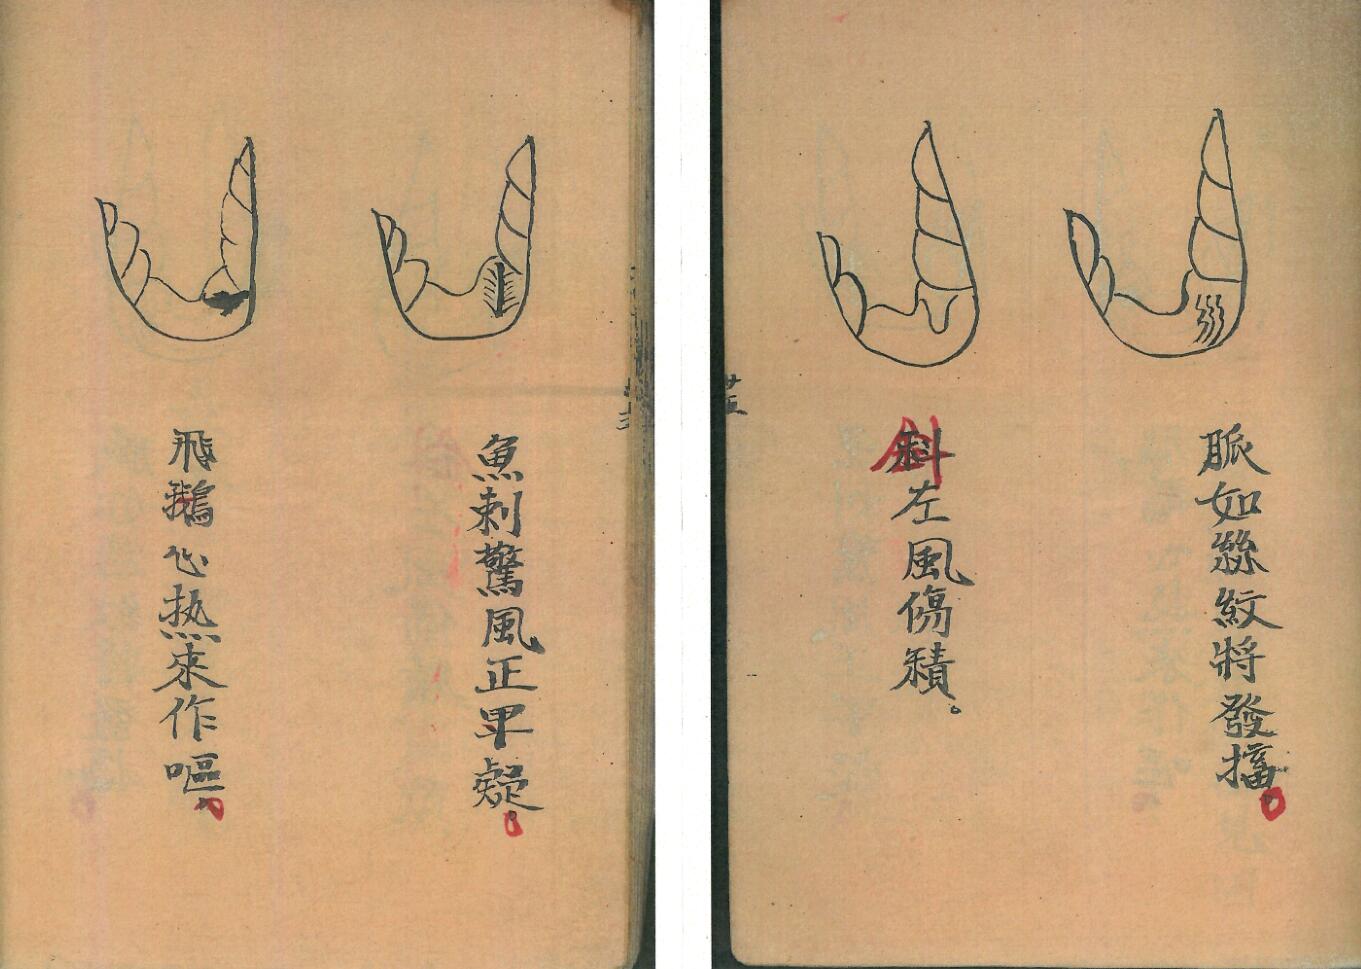 脈如絲紋將發搐。
斜左風傷積。
魚刺驚風正 疑。
飛鵝心热來作嘔。